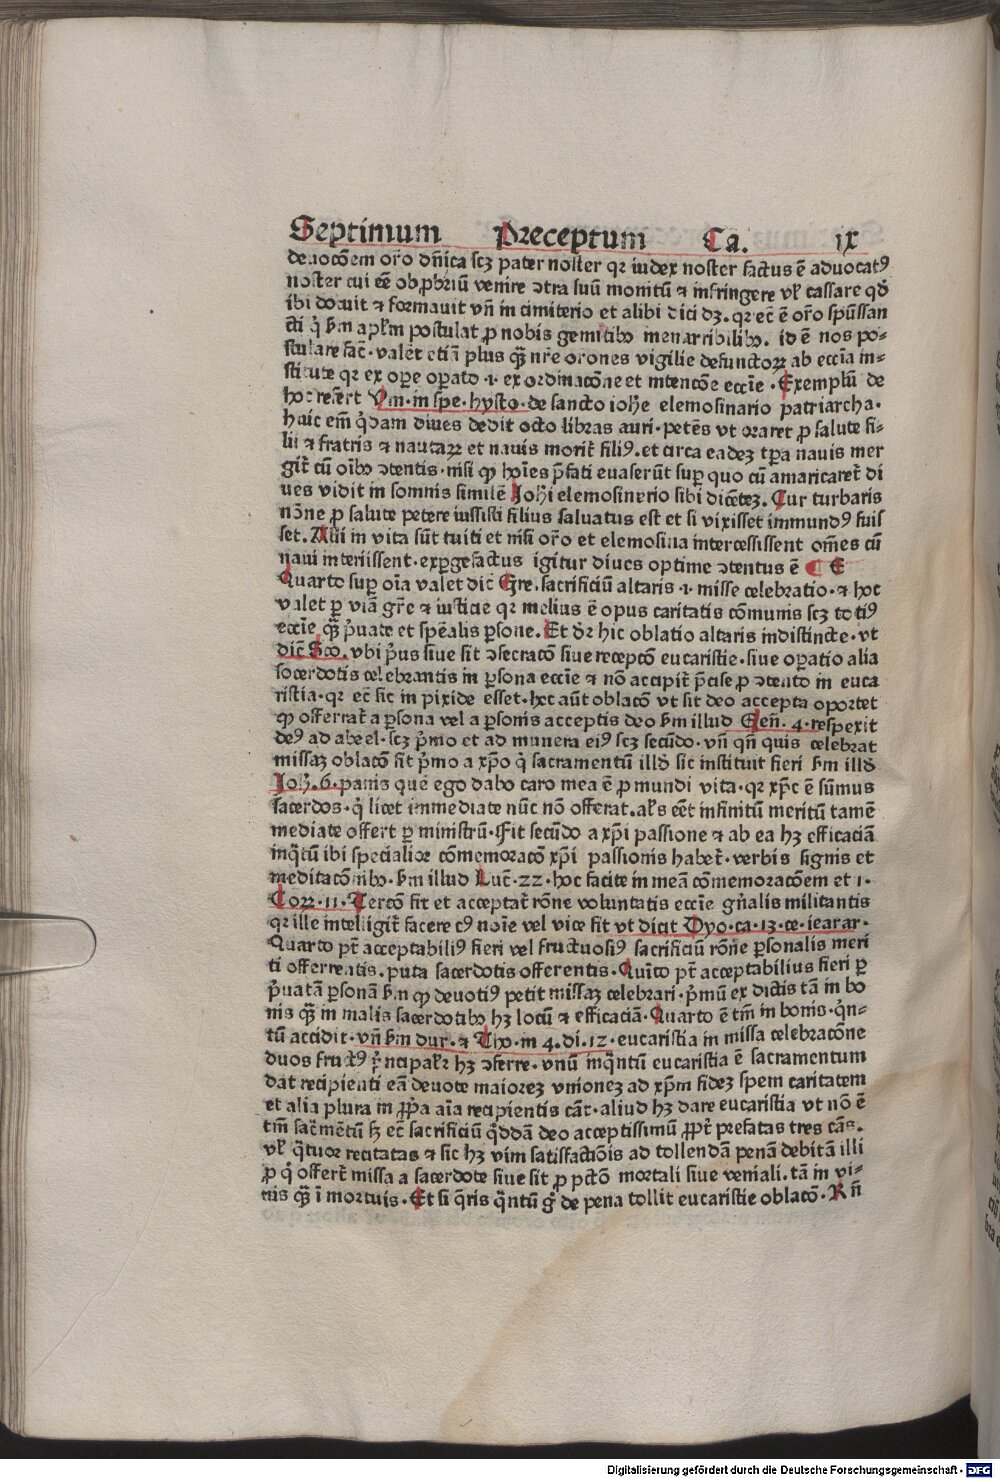 Septimum Preceptum Ca. ix
deuocōem oro dn̄ica scꝫ pater noster qr iudex noster factus ē aduocatꝰ
noster cui eē ob ꝓbriū venire ↄtra suū monitū ⁊ infringere vl̓ cassare qd̓
ibi docuit ⁊ formauit vn̄ in cimiterio et alibi dici dꝫ. qr ec̄ ē or̄o spūssan
cti q̇ ẜm apl̓m postulat ꝓ nobis gemitibꝰ inenarribilibꝰ. id ē nos po⸗
stulare fac̄. valet etiā plus qᷓꝫ nr̄e orones vigilie defunctoꝝ ab eccīa in⸗
stitute qr ex oꝑe oꝑato .i. ex ordinacōne et intencōe eccīe. Exemplū de
hoc refert Vin. in spe. hysto. de sancto ioh̄e elemosinario patriarcha.
huic em̄ qͥdam diues dedit octo libras auri. petēs vt oraret ꝓ salute fi⸗
lii ⁊ fratris ⁊ nautaꝝ et nauis morit̄ filiꝰ. et circa eadeꝫ tꝑa nauis mer
git̄ cū oībꝰ ↄtentis. nisi qꝫ hoīes p̄fati euaserūt suꝑ quo cū amaricaret̄ di
ues vidit in somnis similē Joh̄i elemosinerio sibi dicēteꝫ. Cur turbaris
nōne ꝓ salute petere iussisti filius saluatus est et si vixisset immundꝰ fuis
set. Alii in vita sūt tuiti et nisi or̄o et elemosina intercessissent om̄es cū
naui interiissent. exꝑgefactus igitur diues optime ↄtentus ē ¶ E
Quarto suꝑ oīa valet dic̄ Gre. sacrificiū altaris .i. misse celebratio. ⁊ hoc
valet ꝑ viā gr̄e ⁊ iusticie qr melius ē opus caritatis cōmunis scꝫ totiꝰ
eccīe qᷓꝫ p̓uate et spēalis ꝑsone. Et dr̄ hic oblatio altaris indistincte. vt
dic̄ Sco. vbi pͥus siue sit ↄsecratō siue receptō eucaristie. siue oꝑatio alia
socerdotis celebrantis in ꝑsona eccīe ⁊ nō accipit̄ p̄cise ꝓ ↄtento in euca
ristia. qr ec̄ sic in pixide esset. hec aūt oblacō vt sit deo accepta oportet
qꝫ offerrat̄ a ꝑsona vel a ꝑsonis acceptis deo ẜm illud Gen̄. 4. respexit
deꝰ ad abeel. scꝫ pͥmo et ad munera eiꝰ scꝫ secūdo. vn̄ qn̄ quis celebrat
missaꝫ oblacō fit pͥmo a xp̄o qͥ sacramentū illd̓ sic instituit fieri ẜm illd̓
Joh̄. 6. panis quē ego dabo caro mea ē ꝓ mundi vita. qr xp̄c ē sūmus
sacerdos. qͥ licet immediate nūc nō offerat. al̓s eēt infinitū meritū tamē
mediate offert ꝑ ministrū. Fit secūdo a xp̄i passione ⁊ ab ea hꝫ efficaciā
inqᷓtū ibi specialior cōmemoracō xp̄i passionis habet̄. verbis signis et
meditacōnibꝰ. ẜm illud Luc̄. 22. hoc facite in meā cōmemoracōem et 1.
Coꝝ. 11. Tercō fit et acceptat̄ rōne voluntatis eccīe gn̄alis militantis
qr ille intelligit̄ facere cꝰ noīe vel vice fit vt dicit Dyo. ca. 13. ce. ierar.
Quarto pt̄ acceptabiliꝰ fieri vel fructuosiꝰ sacrificiū rōne ꝑsonalis meri
ti offerrentis. puta sacerdotis offerentis. Quīto pt̄ acceptabilius fieri ꝑ
p̓uatā ꝑsonā ẜm qꝫ deuotiꝰ petit missaꝫ celebrari. pͥmū ex dictis tā in bo
nis qᷓꝫ in malis sacerdotibꝰ hꝫ locū ⁊ efficaciā. Quarto ē tm̄ in bonis. qͣn⸗
tū accidit. vn̄ ẜm dur. ⁊ Tho. in 4. di. 12. eucaristia in missa celebracōne
duos fructꝰ pͥncipalr̓ hꝫ ↄferre. vnū inqͣntū eucaristia ē sacramentum
dat recipienti eā deuote maioreꝫ vnioneꝫ ad xp̄m fideꝫ spem caritatem
et alia plura in ꝓpͥa aīa recipientis cāt. aliud hꝫ dare eucaristia vt nō ē
tm̄ sac̄mētū sꝫ ec̄ sacrificiū qͦddā deo acceptissimū ꝓpt̄ prefatas tres cās.
vl̓ qͣtuor recitatas ⁊ sic hꝫ vim satisfactiōis ad tollendā penā debitā illi
ꝓ qͦ offert̄ missa a sacerdote siue sit ꝓ pctō mortali siue veniali. tā in vi⸗
uis qᷓꝫ ī mortuis. Et si qͥris qͣntū gͦ de pena tollit eucaristie oblacō. Rn̄
Digitalisierung gefördert durch die Deutsche Forschungsgemeinschaft - DFG